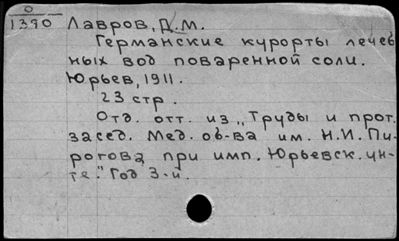 О
1390 Лавров, Д.М.
Германские курорты лечеб
ных вод поваренной соли.
Юрьев, 1911.
23 стр.
Отд. отт. из „Труды и прот.
засед. Мед. об-ва им. Н.И. Пи-
рогова при имп. Юрьевск. ун-
те." Год 3-й.